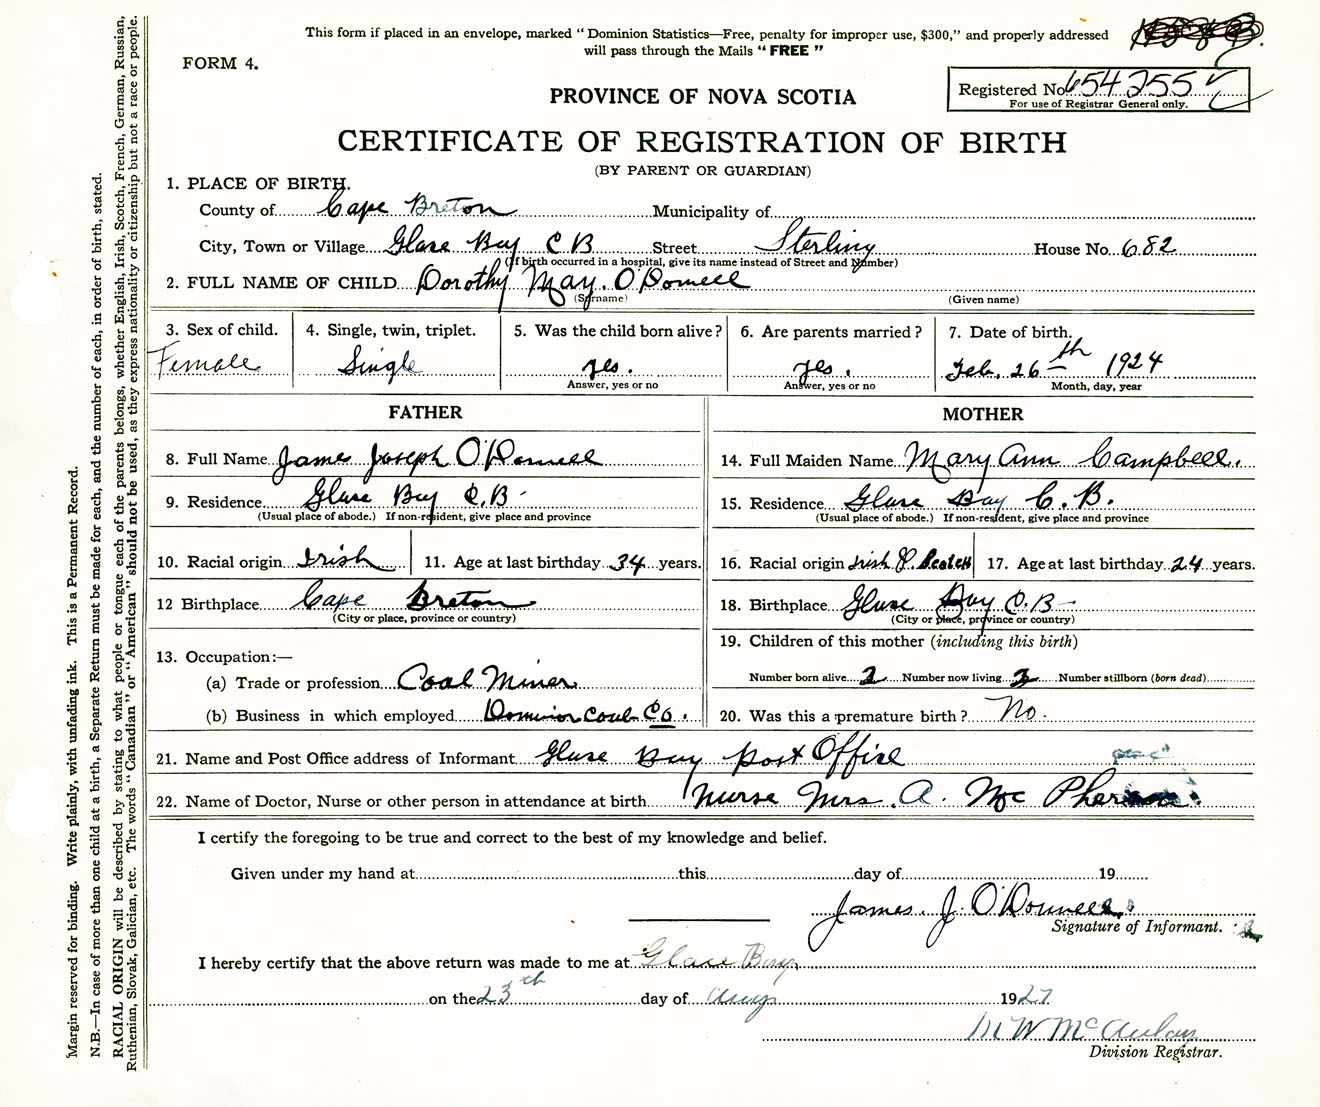 This form if placed in an envelope, marked “Dominion Statistics—Free, penalty for improper use, $300,” and properly addressed
will pass through the Mails “FREE”
FORM 4.
Registered No. 654255
For use of Registrar General only.
PROVINCE OF NOVA SCOTIA
CERTIFICATE OF REGISTRATION OF BIRTH
(BY PARENT OR GUARDIAN)
1. PLACE OF BIRTH.
County of Cape Breton Municipality of
City, Town or Village Glase Bay C B Street Sterling House No. 682
(If birth occurred in a hospital, give its name instead of Street and Number)
2. FULL NAME OF CHILD Dorothy May. O'Donnell
(Surname) (Given name)
3. Sex of child. 4. Single, twin, triplet. 5. Was the child born alive? 6. Are parents married? 7. Date of birth.
Female Single yes. yes. Feb. 26th 1924
Answer, yes or no Answer, yes or no Month, day, year
FATHER MOTHER
8. Full Name James Joseph O'Donnell 14. Full Maiden Name Mary Ann Campbell.
9. Residence Glase Bay C.B. 15. Residence Glase Bay C. B.
(Usual place of abode.) If non-resident, give place and province (Usual place of abode.) If non-resident, give place and province
10. Racial origin Irish 11. Age at last birthday 34 years. 16. Racial origin Irish & Scotch 17. Age at last birthday 24 years.
12 Birthplace Cape Breton 18. Birthplace Glase Bay C.B—
(City or place, province or country) (City or place, province or country)
19. Children of this mother (including this birth)
13. Occupation:—
(a) Trade or profession Coal Miner Number born alive Number now living Number stillborn (born dead)
(b) Business in which employed Dominion Coal Co. 20. Was this a premature birth? No.
21. Name and Post Office address of Informant Glase Bay Post Office
22. Name of Doctor, Nurse or other person in attendance at birth Nurse Mrs. A. Mc Pherson.
I certify the foregoing to be true and correct to the best of my knowledge and belief.
Given under my hand at this day of 19
James. J. O'Donnell.
Signature of Informant.
I hereby certify that the above return was made to me at Glace Bay,
on the 23th day of Aug 1927
M W McAulay
Division Registrar.
Margin reserved for binding. Write plainly, with unfading ink. This is a Permanent Record.
N.B.—In case of more than one child at a birth, a Separate Return must be made for each, and the number of each, in order of birth, stated.
RACIAL ORIGIN will be described by stating to what people or tongue each of the parents belongs, whether English, Irish, Scotch, French, German, Russian,
Ruthenian, Slovak, Galician, etc. The words “Canadian” or “American” should not be used, as they express nationality or citizenship but not a race or people.